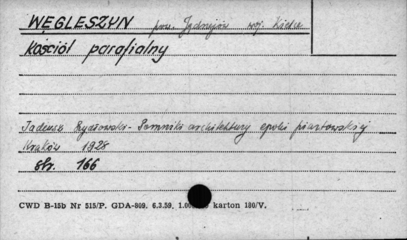 WĘGLESZYN pow. Jędrzejów woj. Kielce
kościół parafialny
Tadeusz Szydłowski - Pomniki architektury epoki piastowskiej
Kraków 1928
str. 166
CWD B-15b Nr 515/P. GDA-809. 6.3.59. 1.00 karton 180/V.